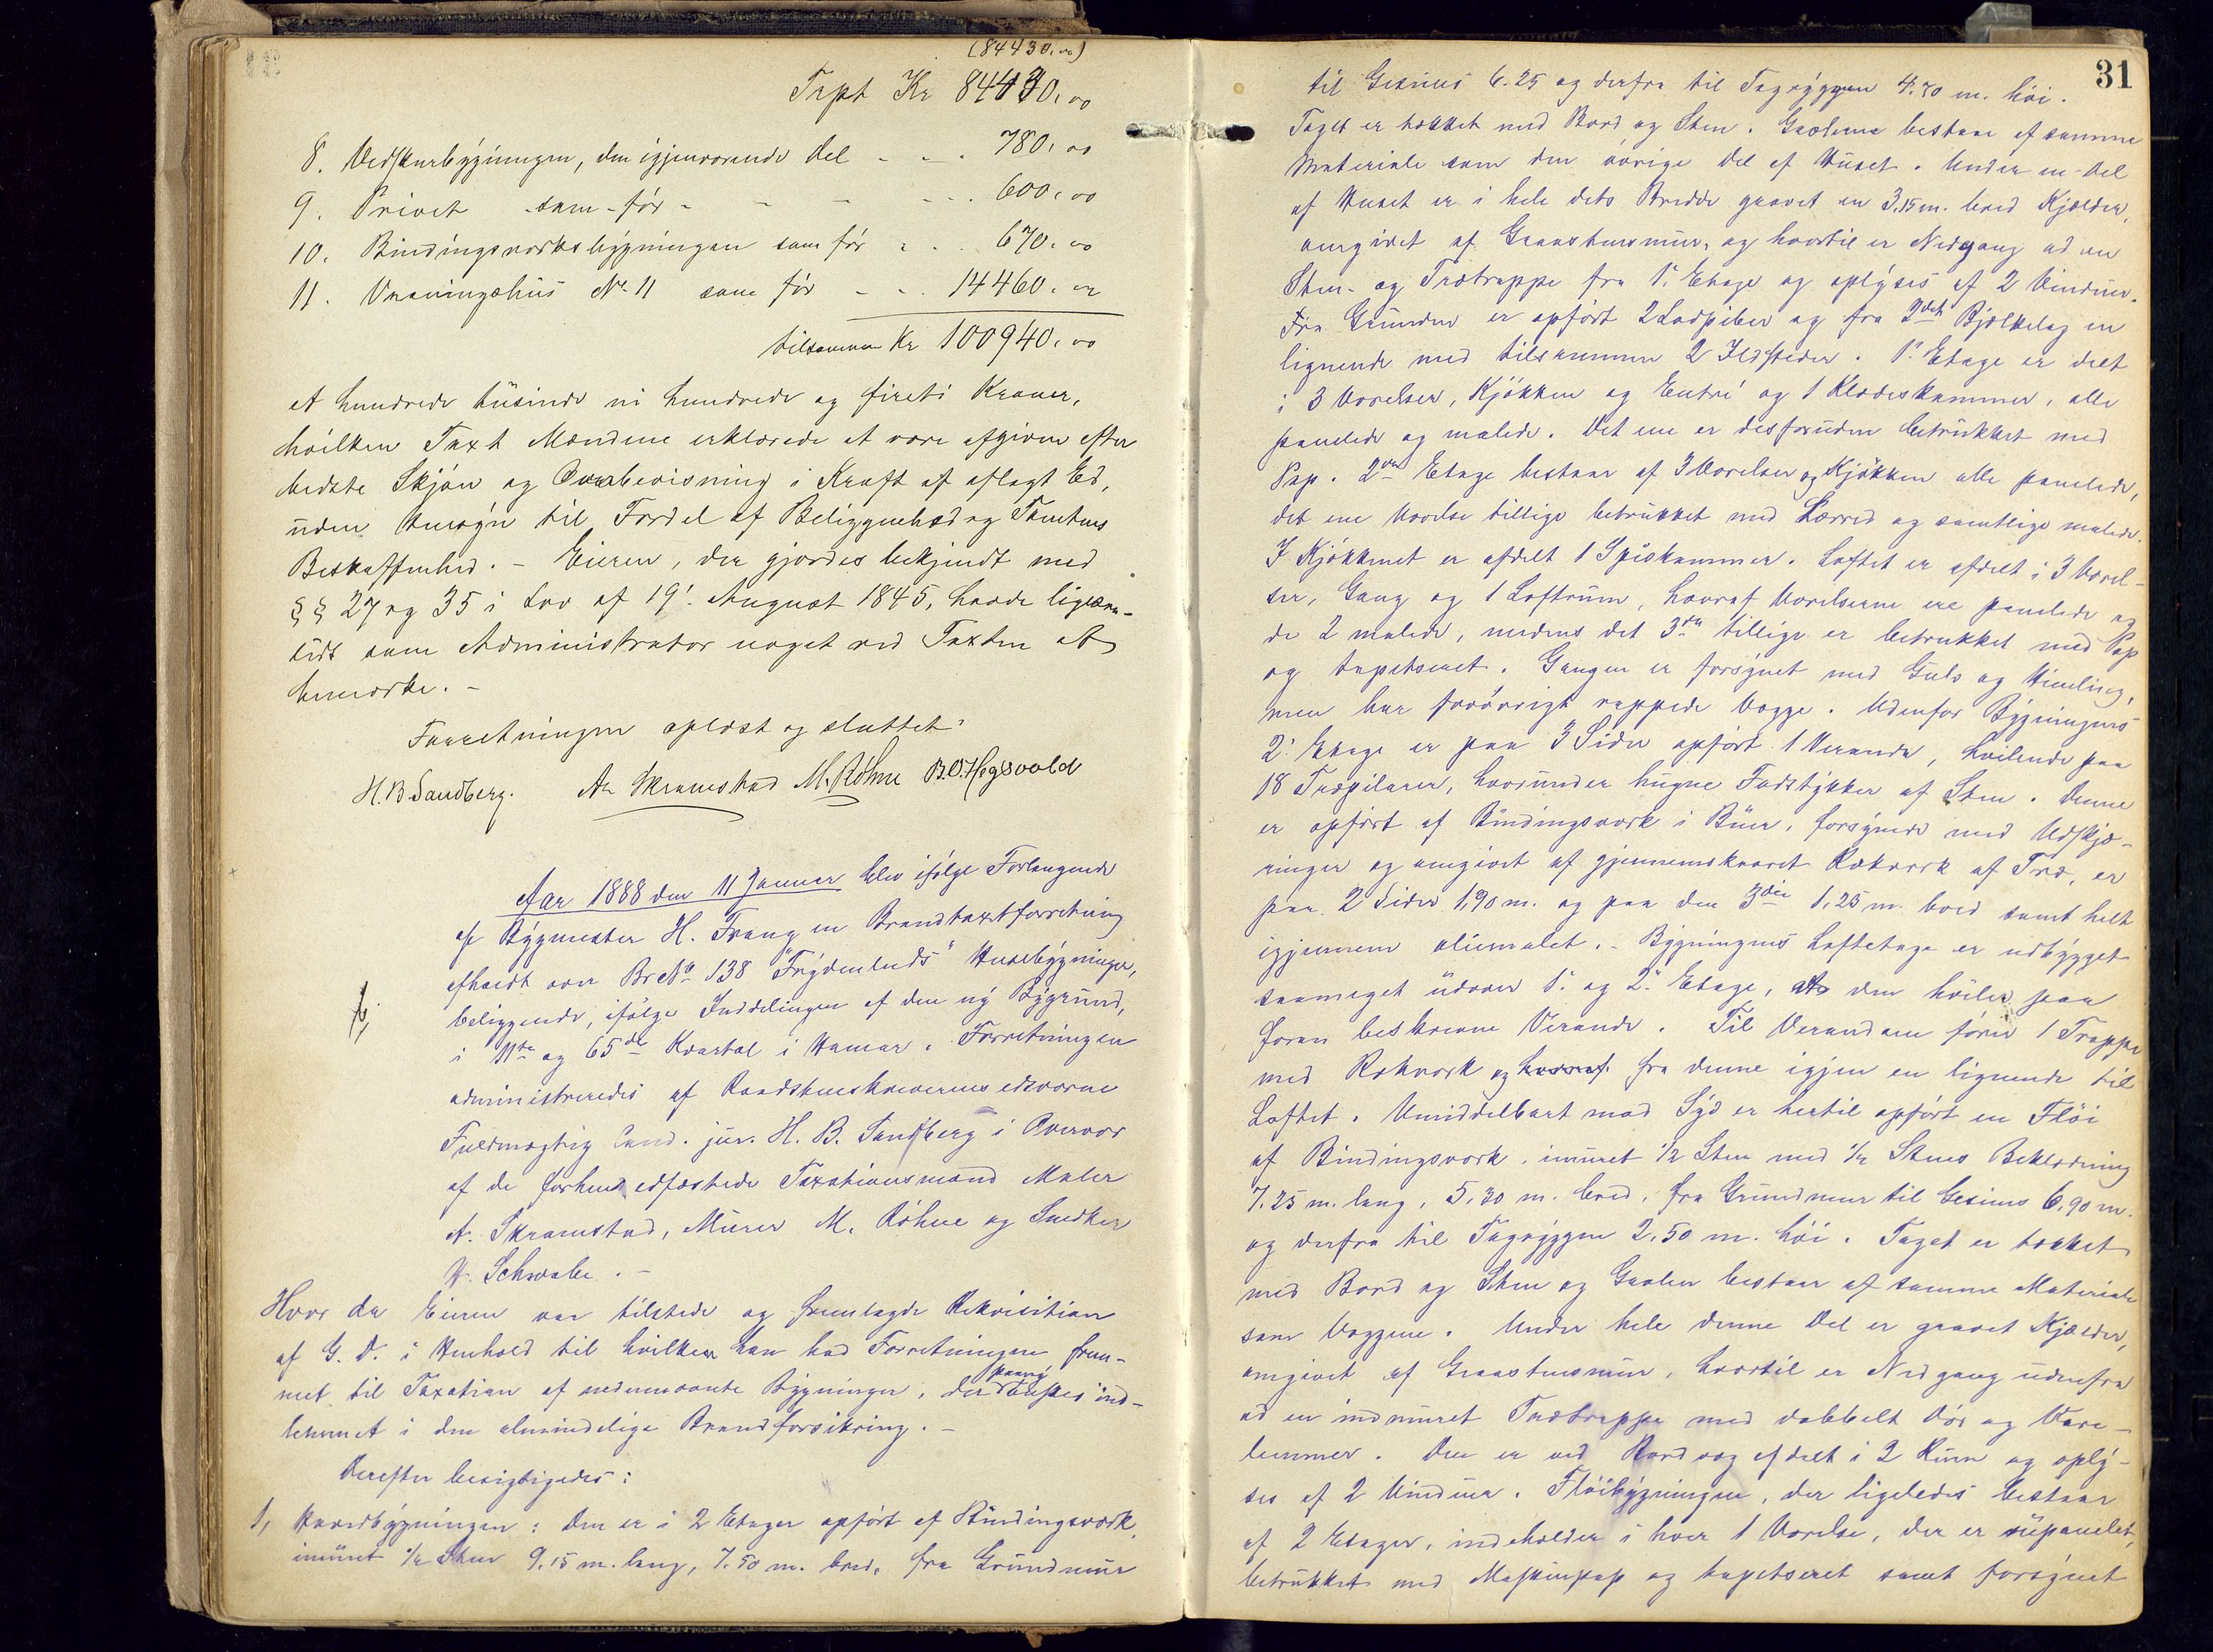 (84430.00)
Trpt Kr 84430.00
8. Vedskurbygningen, den igjenværende Del - - - 780.00
9. Privet - som - før - - - - - 600.00
10. Bindingsværksbygningen som før - - 670.00
11. Vaaningshus No 11 som før - - 14460.00
tilsammen Kr 100940.00
et hundrede tusinde ni hundrede og fireti Kroner,
hvilken Taxt Mændene erklærede at være afgiven efter
bedste Skjøn og Overbevisning i Kraft af aflagt Ed,
uden Hensyn til Fordel af Beliggenhed og Tomtens
Beskaffenhed. - Eieren, der gjordes bekjendt med
§§ 27 og 35 i Lov af 19. August 1845, havde ligesaa-
lidt som Administrator noget ved Taxten at
bemærke. -
Forretningen oplæst og sluttet.
H. B. Sandberg. A. Skramstad M. Røhne B.O. Hegsvold
Aar 1888 den 11 Januar blev ifølge Forlangende
af Bygmester H. Frang en Brandtaxtforretning
afholdt over Br No 138 "Frydenlunds" Husebygninger,
beliggende, ifølge Inddelingen af den ny Bygrund,
i 11te og 65de Kvartal i Hamar. Forretningen
administreredes af Raadstueskriverens edsvorne
Fuldmægtig Cand. jur. H. B. Sandberg i Overvær
af de forhen edfæstede Taxationsmænd Maler
A. Skramstad, Murer M. Røhne og Snedker
W. Schwabe. -
Hvor da Eieren var tilstede og fremlagde Rekvisition
af G. D. i Henhold til hvilken han bad Forretningen frem-
met til Taxation af nedennævnte Bygninger, der paany ønskes ind-
lemmet i den almindelige Brandforsikring. -
Derefter besigtigedes:
1, Hovedbygningen: Den er i 2 Etager opført af Bindingsværk,
imuret ½ Sten 9.15 m. lang, 7.50 m. bred, fra Grundmur
31
til Gesims 6.25 og derfra til Tagryggen 4.70 m. høi.
Taget er tækket med Bord og Sten. Gavlerne bestaar af samme
Materiale som den øvrige Del af Huset. Under en Del
af Huset er i hele dets Bredde gravet en 3.15 m. bred Kjælder,
omgivet af Graastensmur, og hvortil er Nedgang ad en
Sten- og Trætrappe fra 1. Etage og oplyses af 2 Vinduer.
Fra Grunden er opført 2 Lodpiber og fra 2det Bjælkelag en
lignende med tilsammen 2 Ildsteder. 1. Etage er delt
i 3 Værelser, Kjøkken og Entré og 1 Klædeskammer, alle
panelede og malede. Det ene er desforuden betrukket med
Pap. 2den Etage bestaar af 3 Værelser og Kjøkken alle panelede,
det ene Værelse tillige betrukket med Lærred og samtlige malede.
I Kjøkkenet er afdelt 1 Spiskammer. Loftet er afdelt i 3 Værel-
ser, Gang og 1 Loftrum, hvoraf Værelserne ere panelede og
de 2 malede, medens det 3die tillige er betrukket med Pap
og tapetseret. Gangen er forsynet med Gulv og Himling,
men har forøvrigt rappede Vægge. Udenfor Bygningens
2. Etage er paa 3 Sider opført 1 Veranda, hvilende paa
18 Træpilarer, hvorunder hugne Fodstykker af Sten. Denne
er opført af Bindingsværk i Buer, forsynede med Udskjæ-
ringer og omgivet af gjennemskaaret Rækværk af Træ, er
paa 2 Sider 1.90 m. og paa den 3die 1.25 m. bred samt helt
igjennem oliemalet. - Bygningens Loftetage er udbygget
saameget udover 1. og 2. Etage, at den hviler paa
foran beskrevne Veranda. Til Verandaen fører 1 Trappe
med Rækværk og hvoraf fra denne igjen en lignende til
Loftet. Umiddelbart mod Syd er hertil opført en Fløi
af Bindingsværk, imuret ½ Sten med ½ Stens Beklædning
7.25 m. lang, 5.30 m. bred, fra Grundmur til Gesims 6.90 m.
og derfra til Tagryggen 2.50 m. høi. Taget er tækket
med Bord og Sten og Gavlen bestaar af samme Materiale
som Væggene. Under hele denne Del er gravet Kjælder,
omgivet af Graastensmur, hvortil er Nedgang udenfra
ad en indmuret Trætrappe med dobbelt Dør og Vare-
lemmer. Den er ved Bordvæg afdelt i 2 Rum og oply-
ses af 2 Vinduer. Fløibygningen, der ligeledes bestaar
af 2 Etager, indeholder i hver 1 Værelse, der er rupanelet,
betrukket med Maskinpap og tapetseret samt forsynet